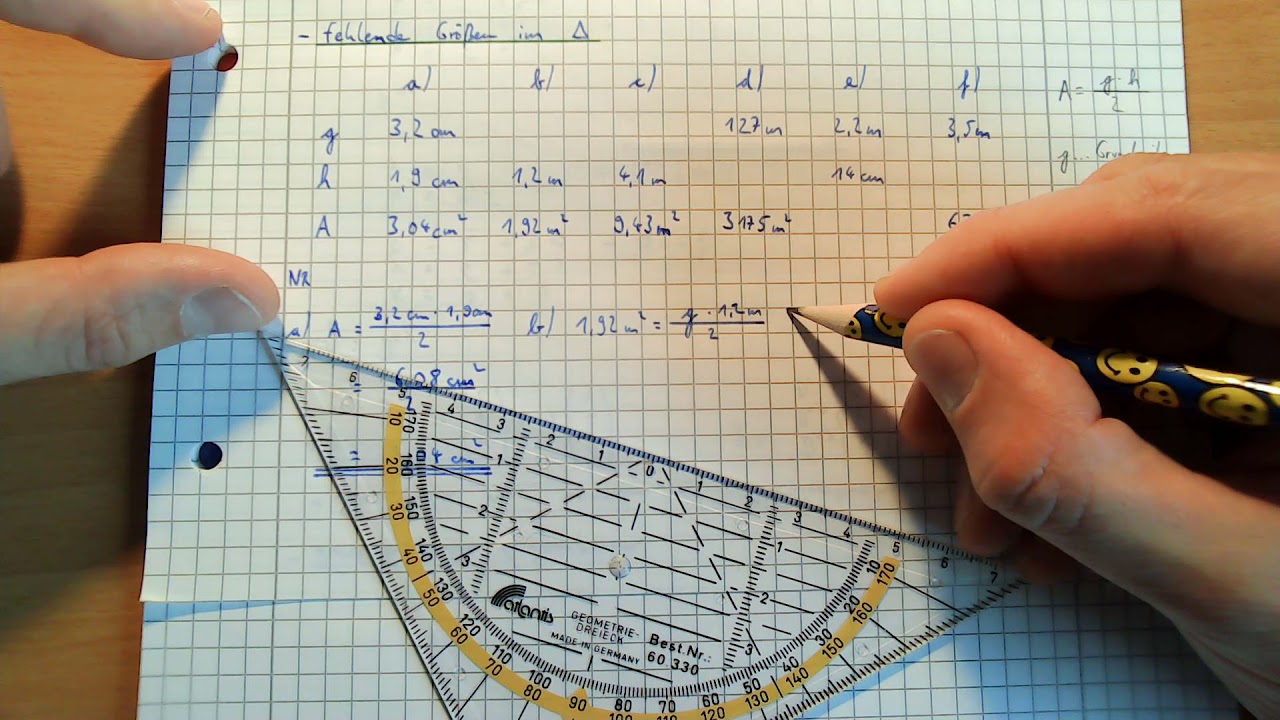 - fehlende Größen im Δ
a) b) c) d) e) f)
A = g · h / 2
g 3,2 cm 127 m 2,2 m 3,5 m
g...
h 1,9 cm 1,2 m 4,1 m 14 cm
A 3,04 cm² 1,92 m² 9,43 m² 3175 m²
NR
a) A = 3,2 cm · 1,9 cm / 2
b) 1,92 m² = g · 1,2 m / 2
= 6,08 cm² / 2
= 4 cm²
7 6 5 4 3 2 1 0 1 2 3 4 5 6 7
1 2 3
1 2 3
10 20 30 40 50 60 70 80 90 100 110 120 130 140 150 160 170
170 160 150 140 130 120 110 100 80 70 60 50 40 30 20 10
atlantis
GEOMETRIE-
DREIECK
MADE IN GERMANY
Best.Nr.:
60 330